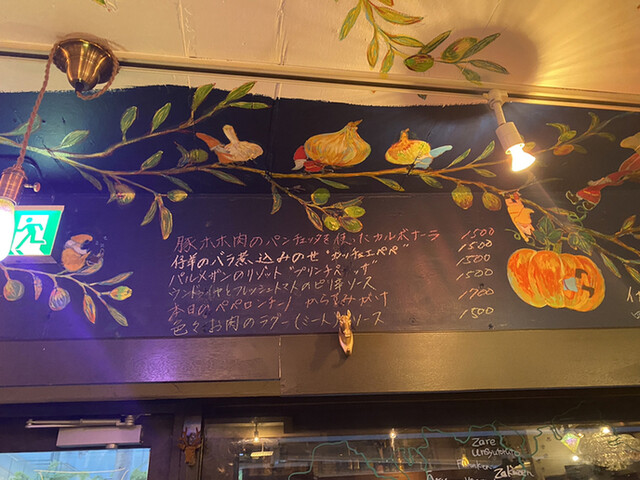 豚ホホ肉のパンチェッタを使ったカルボナーラ 1500
仔羊のバラ煮込みのせ"カッチョエペペ" 1500
パルメザンのリゾット 1500
ンドゥイヤとフレッシュトマトのピリ辛ソース 1500
本日のペペロンチーノ からすみがけ 1700
色々お肉のラグー(ミート)ソース 1500
Zare